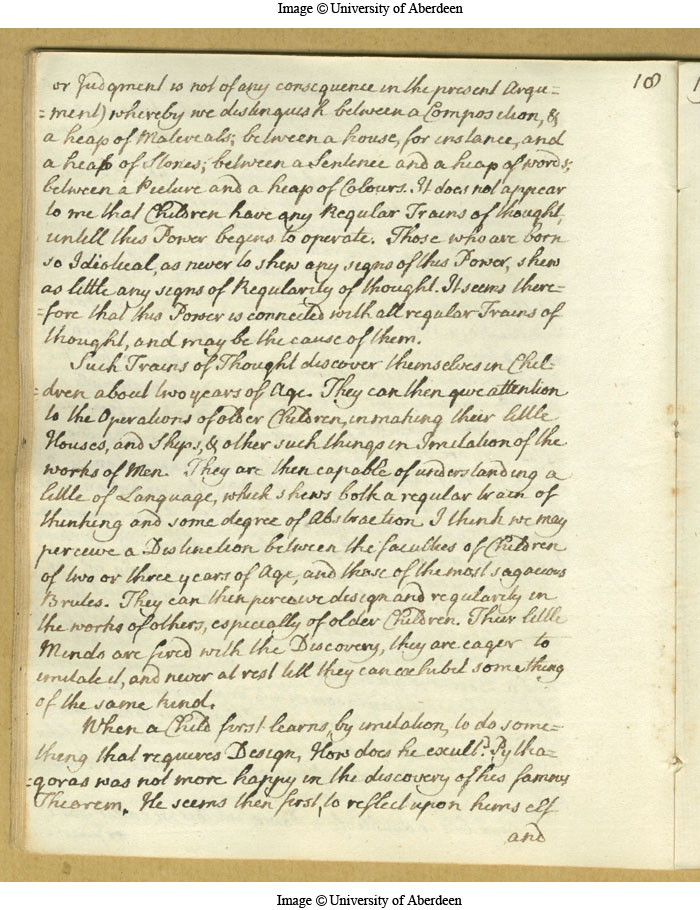 Image © University of Aberdeen
18
or Judgment is not of any consequence in the present Argu=
=ment) whereby we distinguish between a Composition, &
a heap of Materials; between a house, for instance, and
a heap of Stones; between a Sentence and a heap of words;
between a Picture and a heap of Colours. It does not appear
to me that Children have any Regular Trains of thought,
untill this Power begins to operate. Those who are born
so Idiotical, as never to shew any signs of this Power, shew
as little any signs of Regularity of thought. It seems there=
=fore that this Power is connected with all regular Trains of
thought, and may be the cause of them.
Such Trains of Thought discover themselves in Chil=
=dren about two years of Age. They can then give attention
to the Operations of older Children, in making their little
Houses, and Ships, & other such things in Imitation of the
works of Men. They are then capable of understanding a
little of Language, which shews both a regular train of
thinking and some degree of Abstraction. I think we may
perceive a Distinction between the faculties of Children
of two or three years of Age, and those of the most sagacious
Brutes. They can then perceive design and regularity in
the works of others, especially of older Children. Their little
Minds are fired with the Discovery, they are eager to
imitate it, and never at rest till they can exhibit something
of the same kind.
When a Child first learns, by imitation, to do some=
thing that requires Design, How does he exult? Pytha=
=goras was not more happy in the discovery of his famous
Theorem. He seems then first, to reflect upon himself
and
Image © University of Aberdeen